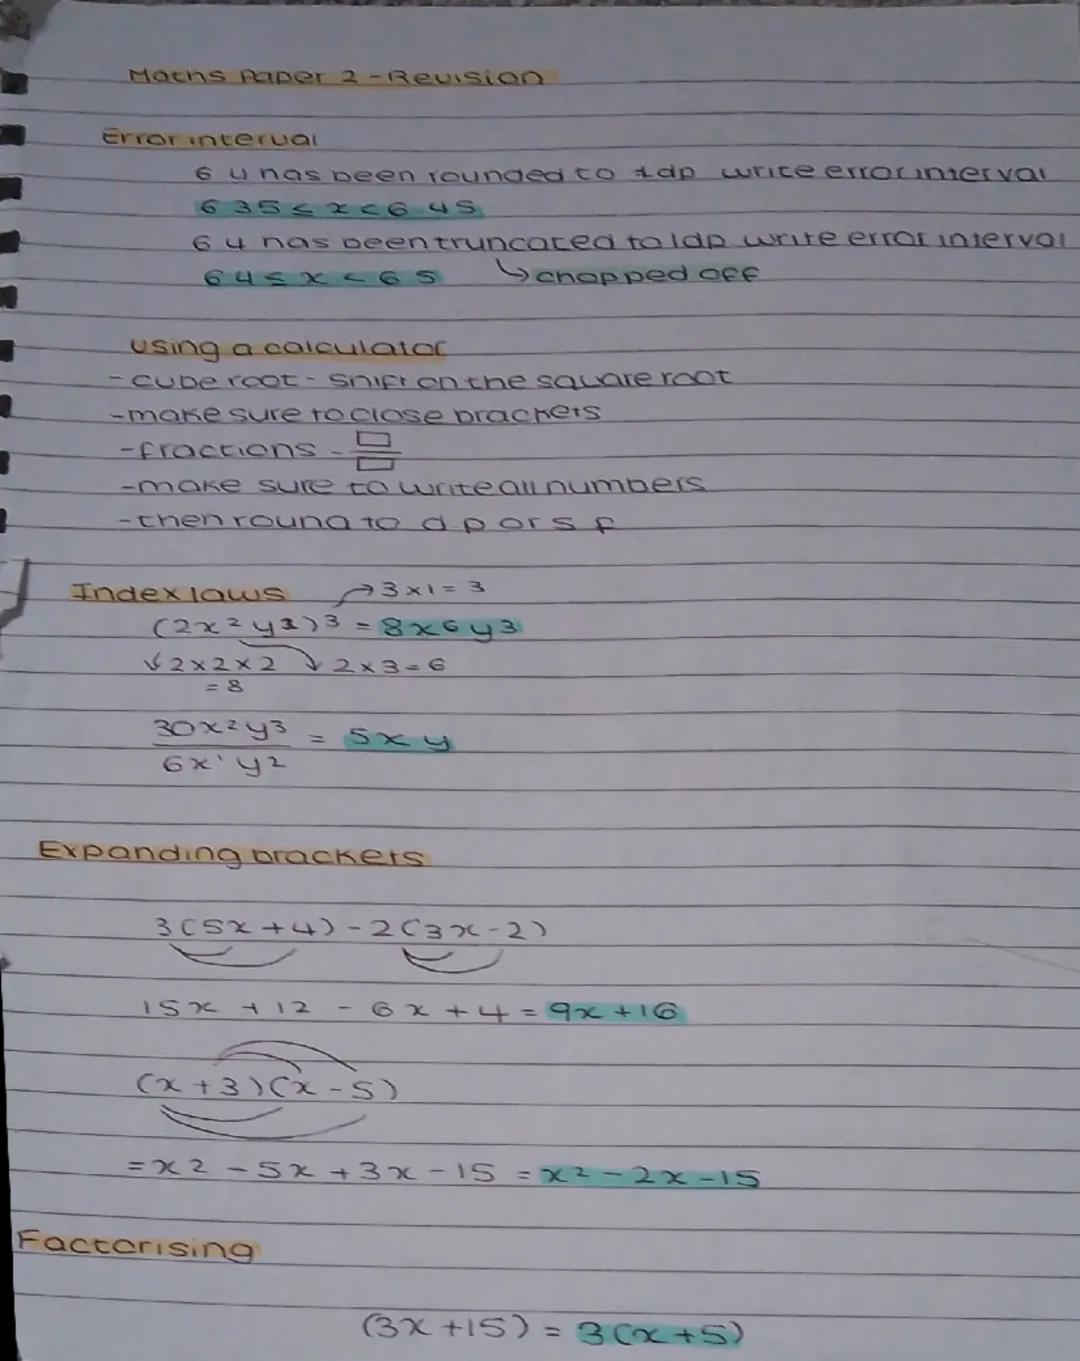 Maths Paper 2 - Revision
Error interval
6 4 has been rounded to 1dp write error interval
6 35 ≤ x < 6 45
6 4 has been truncated to 1dp write error interval
6 4 ≤ x < 6 5 ↳ chopped off
using a calculator
- cube root - shift on the square root
- make sure to close brackets
- fractions - □/□
- make sure to write all numbers
- then round to d p or s f
Index laws → 3 x 1 = 3
(2x² y¹)³ = 8x6 y3
↓ 2 x 2 x 2 ↓ 2 x 3 = 6
= 8
30x² y³ = 5x y
6x¹ y²
Expanding brackets
3(5x + 4) - 2(3x - 2)
15x + 12 - 6x + 4 = 9x + 16
(x + 3)(x - 5)
= x2 - 5x + 3x - 15 = x² - 2x - 15
Factorising
(3x + 15) = 3(x + 5)